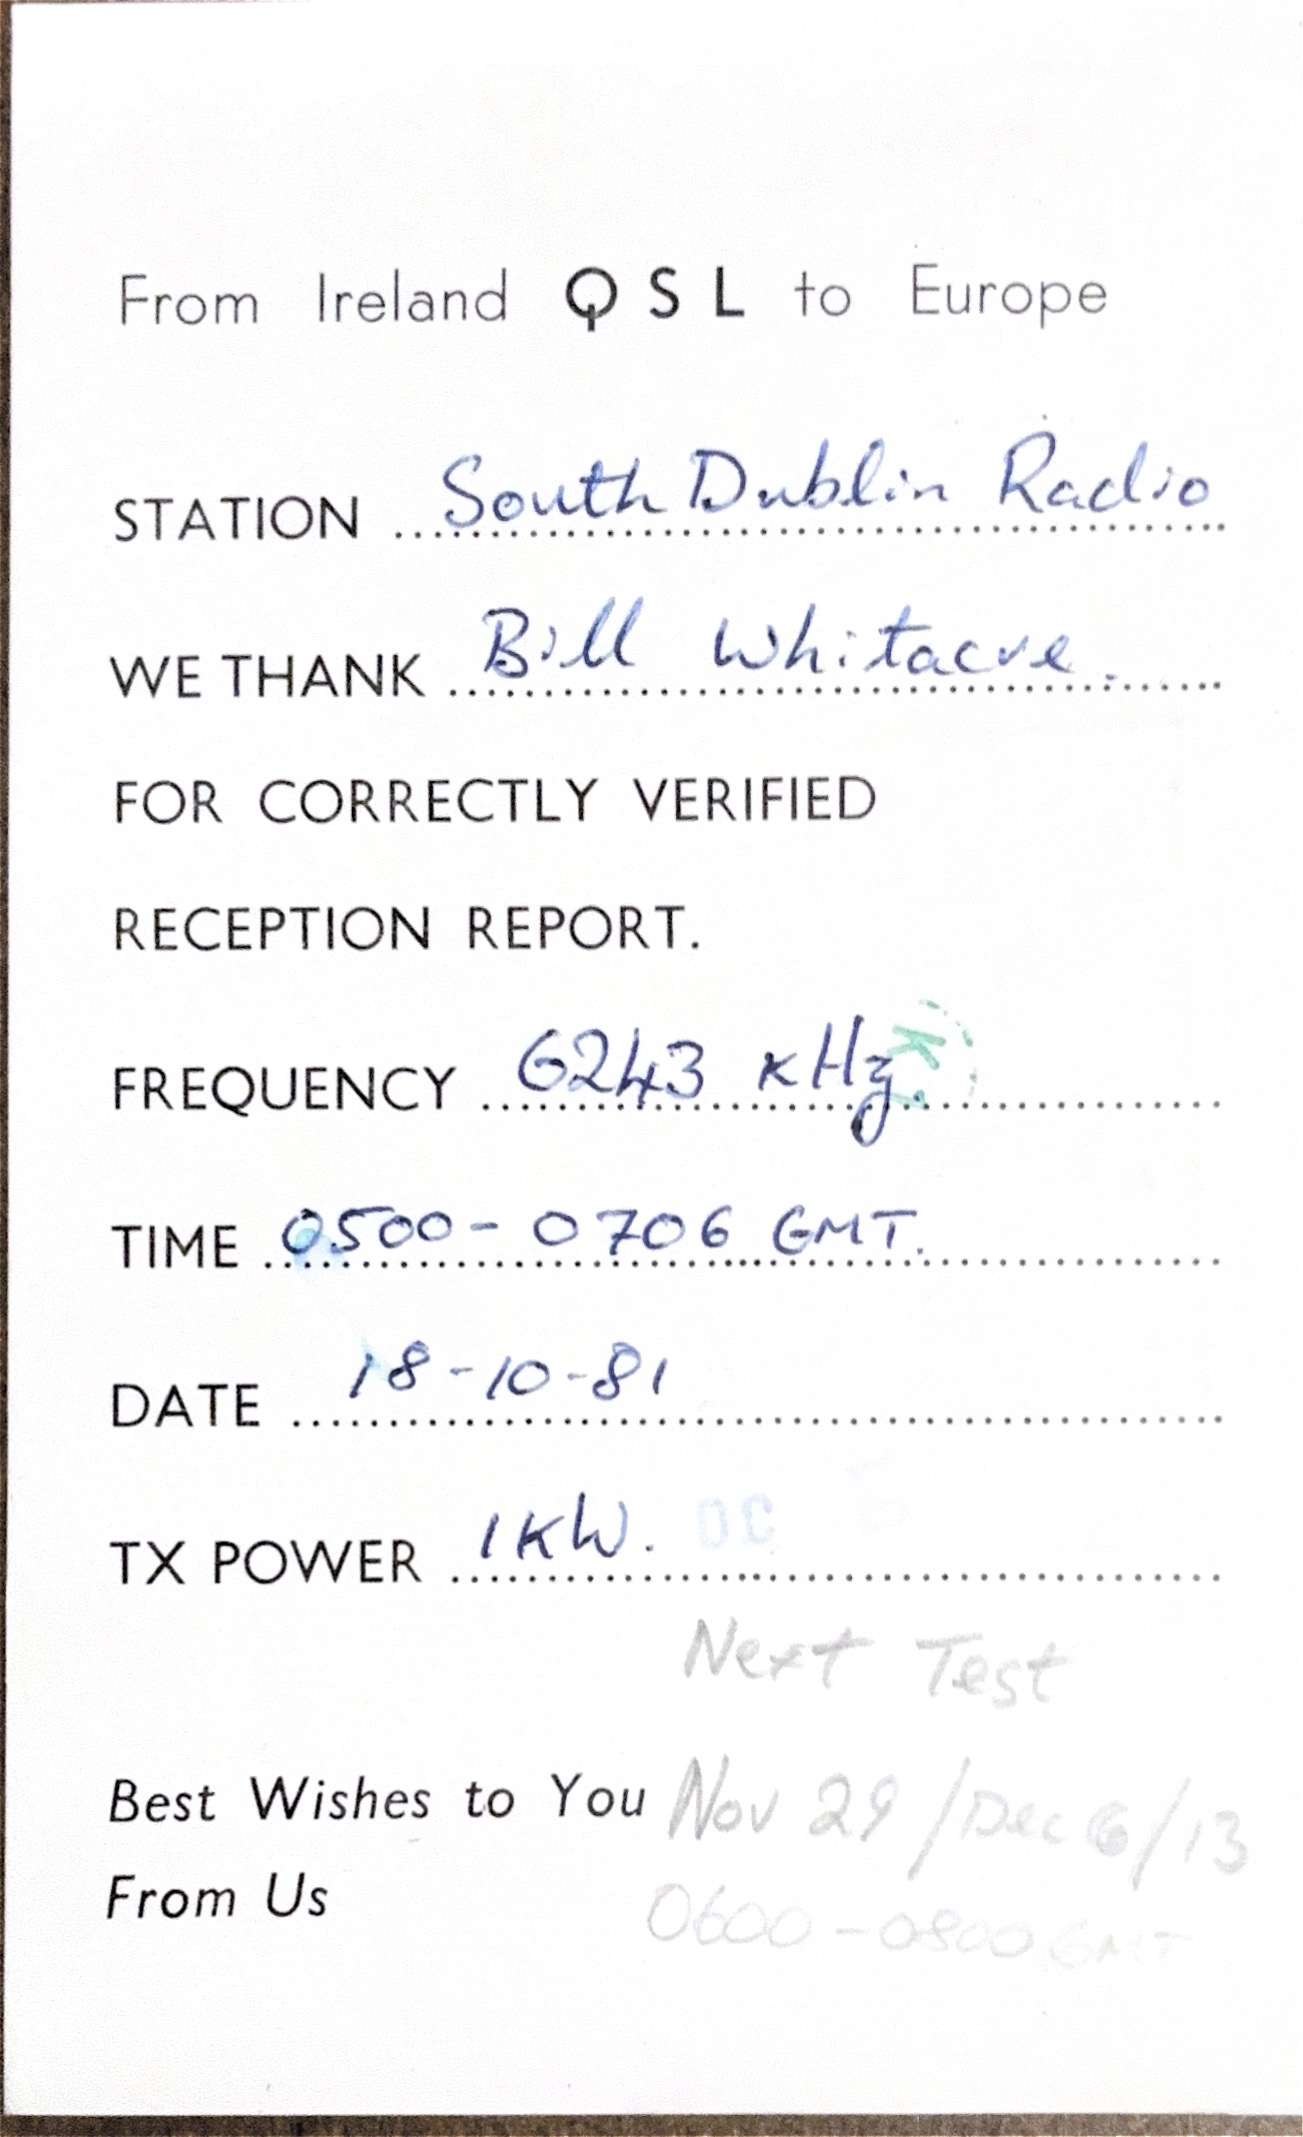 From Ireland QSL to Europe
STATION South Dublin Radio
WE THANK Bill Whitacre.
FOR CORRECTLY VERIFIED
RECEPTION REPORT.
FREQUENCY 6243 KHz.
TIME 0500 - 0706 GMT.
DATE 18-10-81
TX POWER 1KW. DC
Next Test
Best Wishes to You Nov 29/Dec 6/13
From Us 0600-0800 GMT